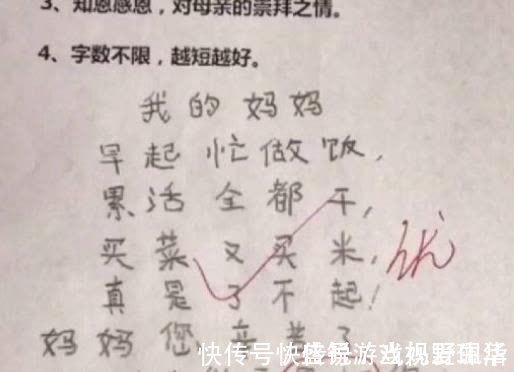 3、知恩感恩，对母亲的崇拜之情。
4、字数不限，越短越好。
我的妈妈
早起忙做饭，
累活全都干，
买菜又买米，
优
真是了不起！
妈妈您辛苦了
快传号